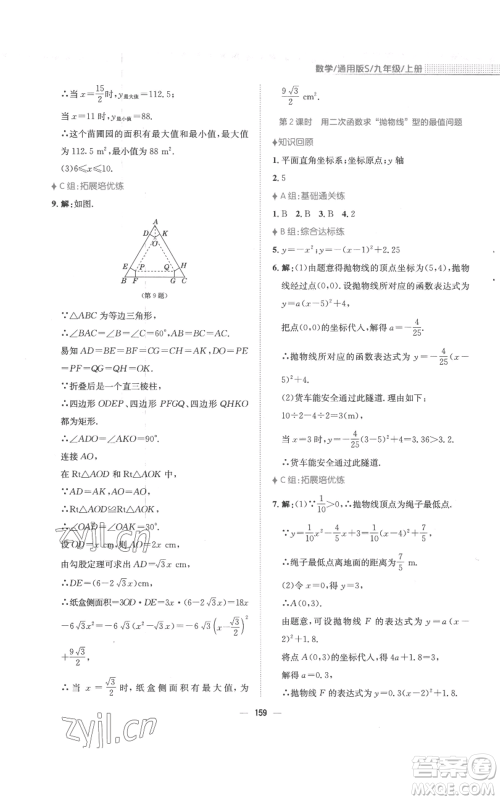 数学/通用版S/九年级/上册
∴当 x=15/2 时，y最大值=112.5；
当 x=11 时，y最小值=88，
∴这个苗圃园的面积有最大值和最小值，最大值为
112.5 m²，最小值为 88 m².
(3)6≤x≤10.
C 组:拓展培优练
9. 解:如图.
A
D K
O
E P Q H
B F G C
(第 9 题)
∵△ABC 为等边三角形，
∴∠BAC=∠B=∠C=60°，AB=BC=AC.
易知 AD=BE=BF=CG=CH=AK，
∴折叠后是一个直三棱柱，
∴四边形 ODEP、四边形 PFGQ、四边形 QHKO
都为矩形.
∴∠ADO=∠AKO=90°.
连接 AO，
在 Rt△AOD 和 Rt△AOK 中，
∴Rt△AOD≌Rt△AOK.
∴∠OAD=∠OAK=30°.
设 OD=x cm，则 AO=2x cm，
由勾股定理可求出 AD=√3x cm，
∴DE=(6-2√3x)cm，
∴纸盒侧面积=3OD·DE=3x(6-2√3x)=18x
-6√3x²=-6√3(x-√3/2)²
+9√3/2，
∴当 x=√3/2 时，纸盒侧面积有最大值为
9√3/2 cm².
第 2 课时 用二次函数求“抛物线”型的最值问题
知识回顾
1. 平面直角坐标系；坐标原点；y 轴
2. 5
A 组:基础通关练
1. B 2. B 3. B 4. 2
B 组:综合达标练
5. y=-x²；y=-(x-1)²+2.25
6. 解:(1)由题意得抛物线的顶点坐标为(5,4)，抛物
线经过点(0,0)，设抛物线所对应的函数表达式为
y=a(x-5)²+4，
把点(0,0)的坐标代入，得 a=-4/25，
∴抛物线的函数表达式为 y=-4/25(x-5)²+4.
(2)货车能安全通过此隧道. 理由如下:
10÷2-4÷2=3，
当 x=3 时，y=-4/25(3-5)²+4=3.36>3，
∴货车能安全通过此隧道.
C 组:拓展培优练
7. 解:(1)∵1/10>0，∴抛物线顶点为绳子最低点.
∵y=1/10x²-4/5x+3=1/10(x-4)²+7/5，
∴绳子最低点离地面的距离为7/5 m.
(2)令 x=0，得 y=3，
∴A(0,3).
由题意，可设抛物线 F 的表达式为 y=a(x-2)²
+1.8，
将 A(0,3)的坐标代入，得 4a+1.8=3，解得
a=0.3，
∴抛物线 F 的表达式为 y=0.3(x-2)²+1.8.
159
zyjl.cn
zyjl.cn